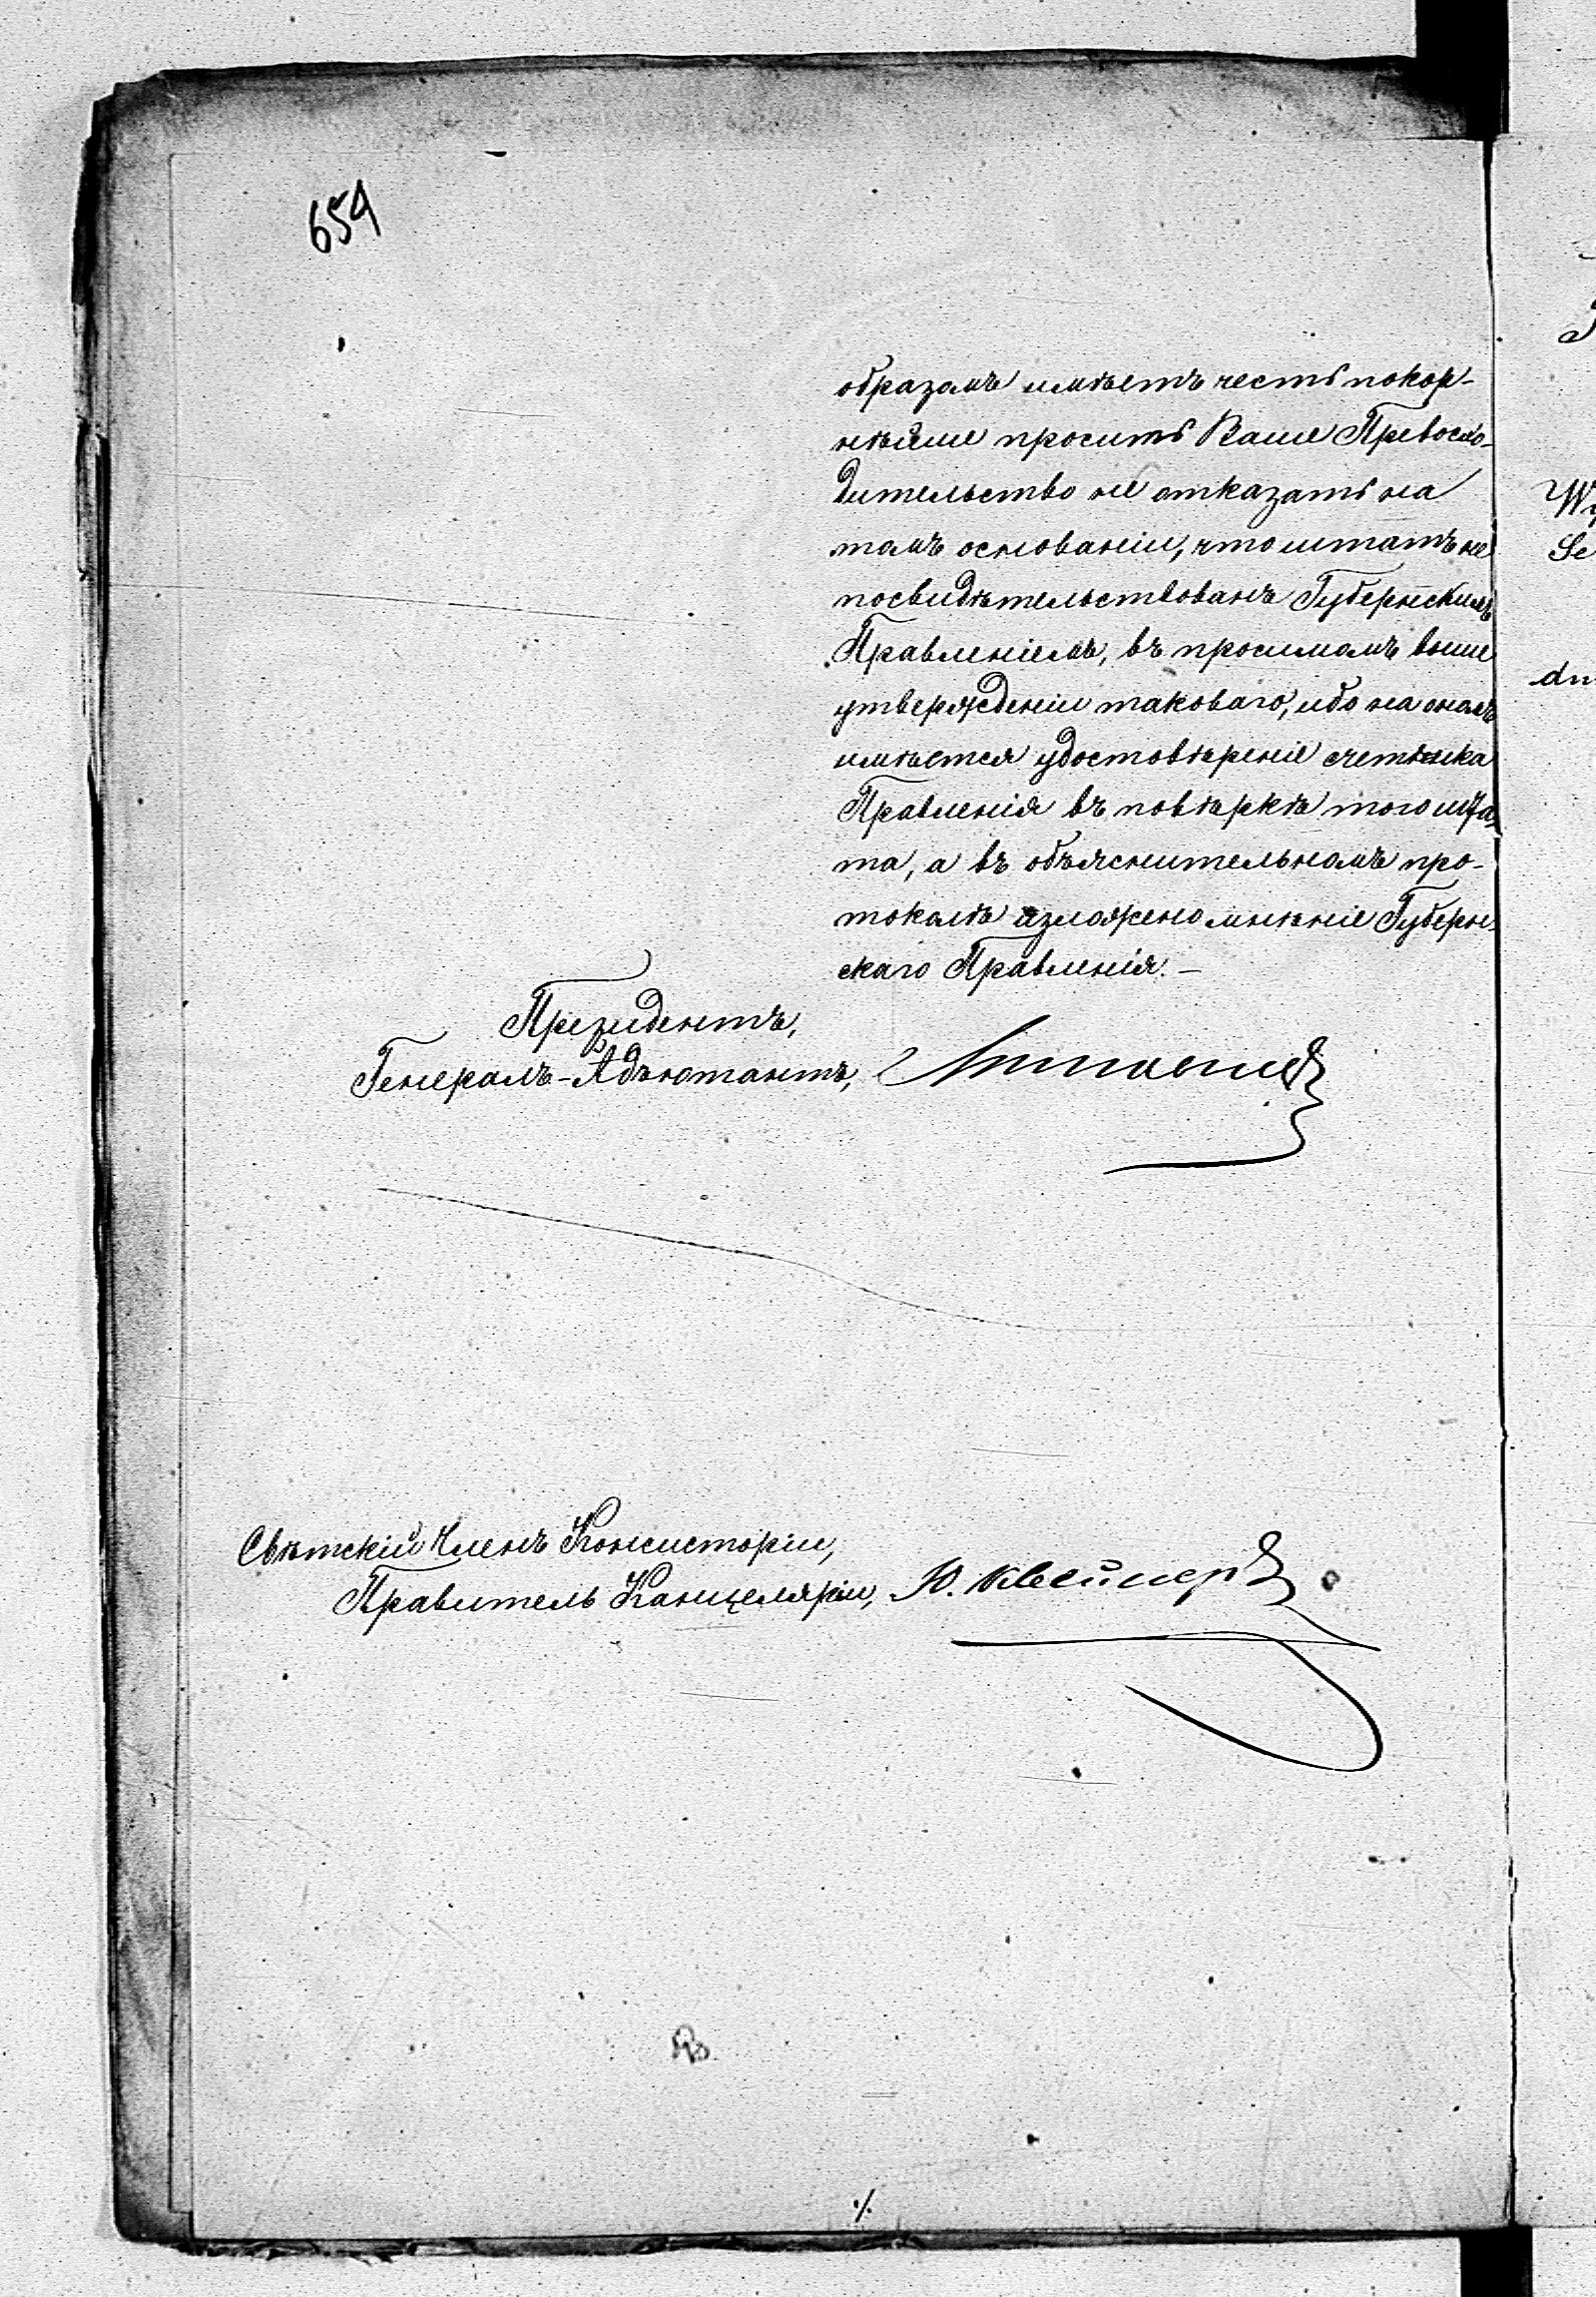 654
образомъ имѣетъ честь покор-
нѣйше просить Ваше Превосхо-
дительство не отказать на
томъ основаніи, что штатъ не
посвидѣтельствованъ Губернскимъ
Правленіемъ, въ просимомъ выше
утвержденіи таковаго, ибо на ономъ
имѣется удостовѣреніе счетчика
Правленія въ повѣркѣ того шта-
та, а въ объяснительномъ про-
токолѣ изложено мнѣніе Губерн-
скаго Правленія. —
Президентъ,
Генералъ-Адъютантъ,
Свѣтскій Членъ Консисторіи,
Правитель Канцеляріи, Ю.